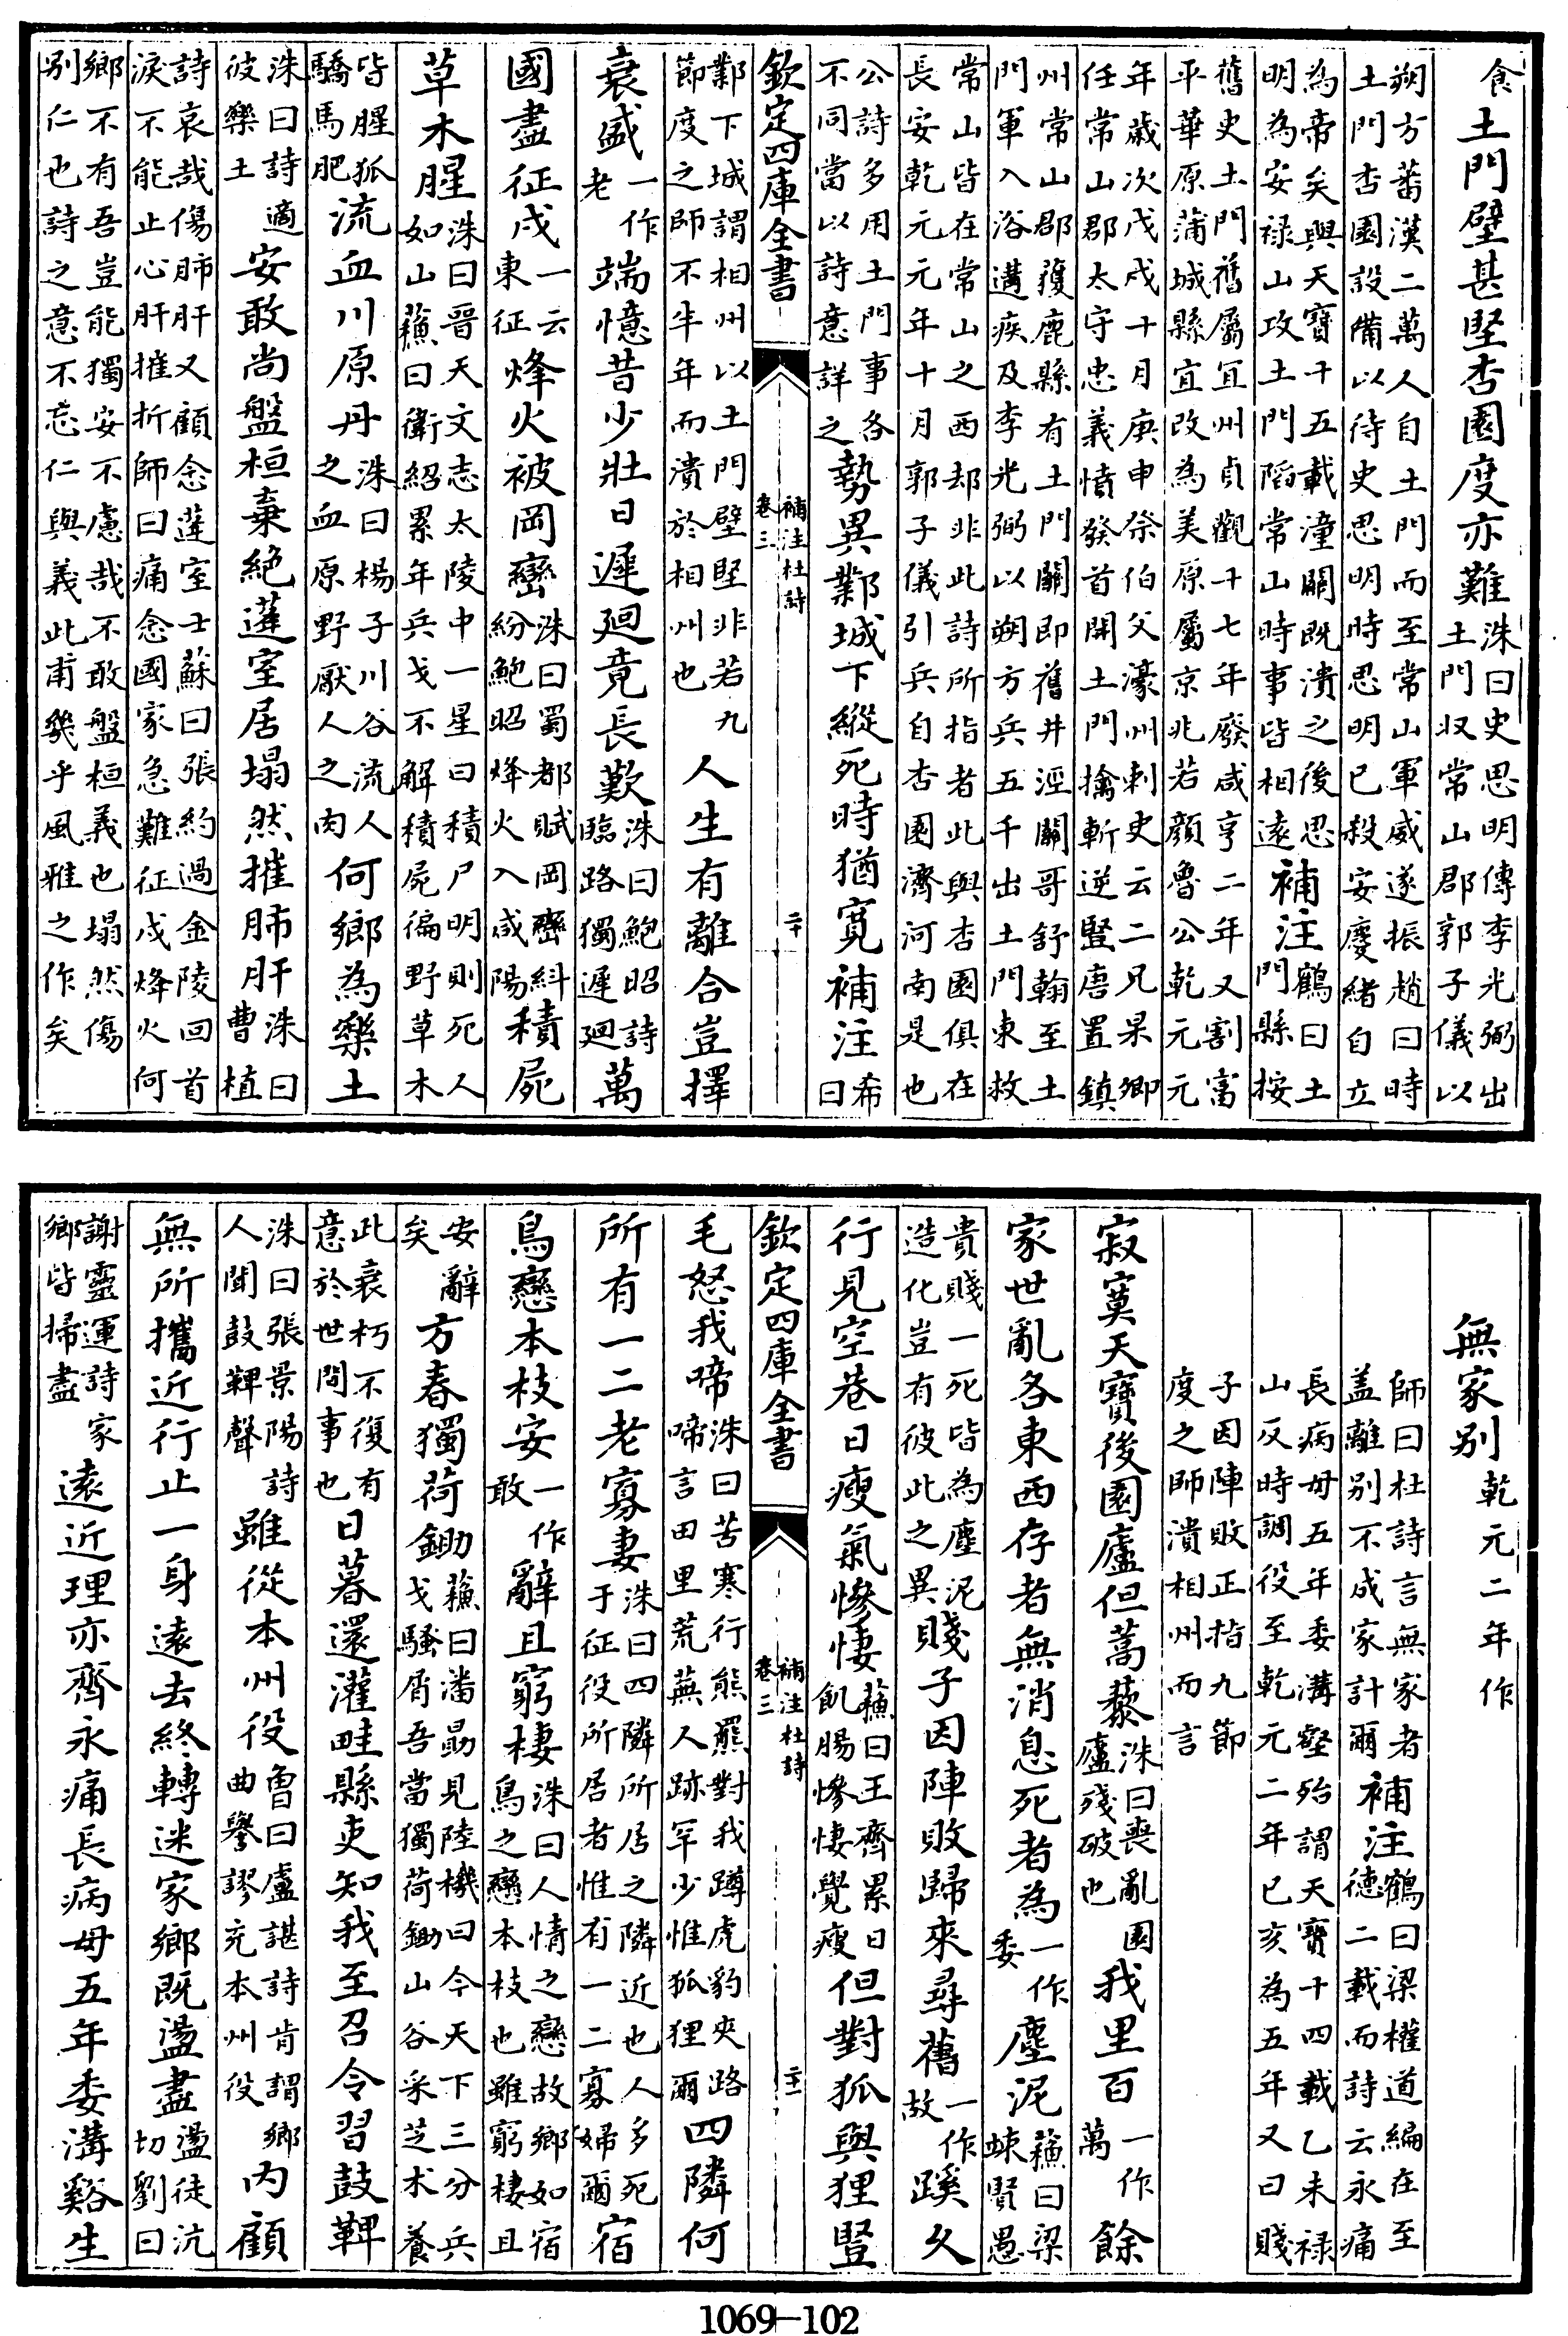 食土門壁甚堅杏園度亦難
洙曰史思明傳李光弼出
土門収常山郡郭子儀以
朔方蕃漢二萬人自土門而至常山軍威遂振趙曰時
土門杏園設備以待史思明時思明已殺安慶緒自立
為帝矣與天寶十五載潼關既潰之後思
明為安禄山攻土門䧟常山時事皆相逺
補注
鶴曰土
門縣按
舊史土門舊屬宜州貞觀十七年廢咸亨二年又割富
平華原蒲城縣宜改為美原屬京兆若顔魯公乾元元
年歲次戊戌十月庚申祭伯父濠州刺史云二兄杲卿
任常山郡太守忠義憤發首開土門擒斬逆豎唐置鎮
州常山郡䕶鹿縣有土門關即舊井涇關哥舒翰至土
門軍入浴遘疾及李光弼以朔方兵五千出土門東救
常山皆在常山之西却非此詩所指者此與杏園俱在
長安乾元元年十月郭子儀引兵自杏園濟河南是也
公詩多用土門事各
不同當以詩意詳之
勢異鄴城下縱死時猶寛補注
希
曰
欽定四庫全書
補注杜詩
卷三
二十
鄴下城謂相州以土門壁堅非若九
節度之師不半年而潰於相州也
人生有離合豈擇
衰盛
一作
老
端憶昔少壯日遲廻竟長歎
洙曰鮑昭詩
臨路獨遲廻
萬
國盡征戍
一云
東征
烽火被岡巒
洙曰蜀都賦岡巒糾
紛鮑昭烽火入咸陽
積屍
草木腥
洙曰晉天文志太陵中一星曰積尸明則死人
如山蘓曰衛紹累年兵戈不解積屍徧野草木
皆腥狐
驕馬肥
流血川原丹
洙曰楊子川谷流人
之血原野厭人之肉
何鄉為樂土
洙曰詩適
彼樂土
安敢尚盤桓棄絶蓬室居塌然摧肺肝
洙曰
曹植
詩哀哉傷肺肝又顧念蓬室士蘇曰張約過金陵回首
淚不能止心肝摧折師曰痛念國家急難征戍烽火何
鄉不有吾豈能獨安不慮哉不敢盤桓義也塌然傷
别仁也詩之意不忘仁與義此甫幾乎風雅之作矣
無家别
乾元二年作
師曰杜詩言無家者
盖離别不成家計爾
補注
鶴曰梁權道編在至
德二載而詩云永痛
長病母五年委溝壑殆謂天寶十四載乙未禄
山反時調役至乾元二年已亥為五年又曰賤
子因陣敗正指九節
度之師潰相州而言
寂寞天寶後園廬但蒿藜
洙曰喪亂園
廬殘破也
我里百
一作
萬
餘
家世亂各東西存者無消息死者為
一作
委
塵泥
蘓曰梁
竦賢愚
貴賤一死皆為塵泥
造化豈有彼此之異
賤子因陣敗歸來尋舊
一作
故
蹊久
行見空巷日瘦氣慘悽
蘓曰王齊累日
飢腸慘悽覺瘦
但對狐與狸豎
欽定四庫全書
補注杜詩
卷三
二十一
毛怒我啼
洙曰苦寒行熊羆對我蹲虎豹夾路
啼言田里荒蕪人跡罕少惟狐狸爾
四隣何
所有一二老寡妻
洙曰四隣所居之隣近也人多死
于征役所居者惟有一二寡婦爾
宿
鳥戀本枝安
一作
敢
辭且窮棲
洙曰人情之戀故鄉如宿
鳥之戀本枝也雖窮棲且
安辭
矣
方春獨荷鋤
蘓曰潘勗見陸機曰今天下三分兵
戈騷屑吾當獨荷鋤山谷采芝术養
此衰朽不復有
意於世間事也
日暮還灌畦縣吏知我至召令習鼓鞞
洙曰張景陽詩
人聞鼓鞞聲
雖從本州役
魯曰盧諶詩肯謂鄉
曲譽謬充本州役
内顧
無所攜近行止一身遠去終轉迷家鄉既盪盡
盪徒沆
切劉曰
謝靈運詩家
鄉皆掃盡
遠近理亦齊永痛長病母五年委溝谿生
1069-102